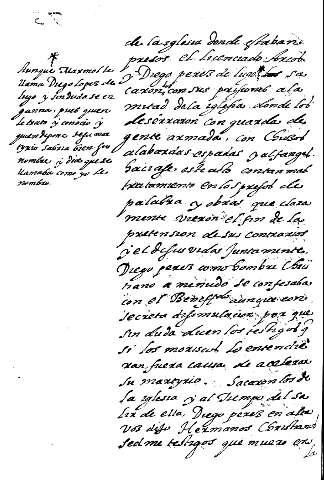 Aunque Marmol le
llama Diego lopez de
lugo y sin duda se en
gaña, pues quien
le trato y conocio y
quien depone de su mar
tyrio sabria bien su
nombre y dice que se
llamaba como yo le
nombro.
de la iglesia donde estaban
presos el licenciado
y Diego perez de lugo los sa
caron con sus prisiones a la
mitad de la iglesia donde los
con guarda de
gente armada, con
alabardas espadas y alfanges
tratamiento en los presos de
palabra y obras que clara
mente vieron el fin de la
pretension de sus contrarios
y el de sus vidas Juntamente
Diego perez como hombre Chris
tiano a menudo se confesaba
con el aunque con
secreta disimulacion por que
sin duda dicen los testigos q
si los moriscos lo entendie
ran fuera causa de acelerar
su martyrio. Sacaron los de
la iglesia y al Tiempo del sa
lir de ella, Diego perez en alta
voz dijo Hermanos Christianos
sedme testigos que muero en
la